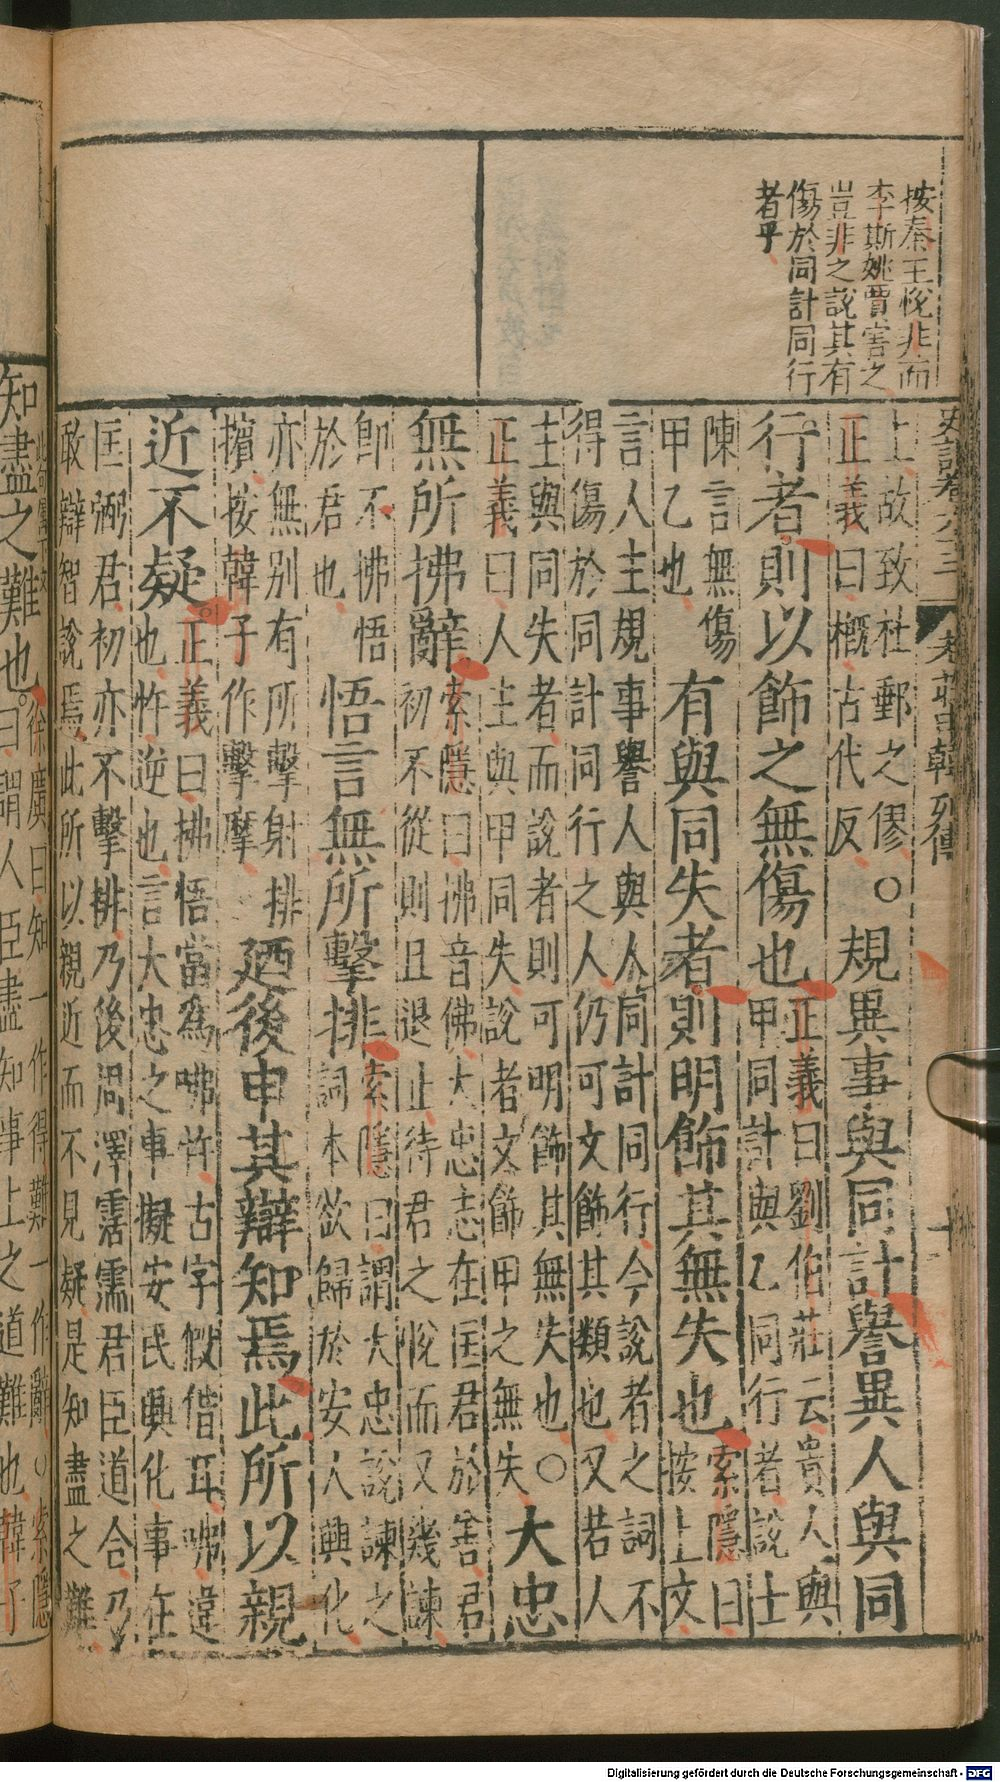 按秦王悅非而
李斯姚賈害之
豈非之說其有
傷於同計同行
者乎
史記卷六十三 老莊申韓列傳 十
上故致杜郵之僇○
正義曰槪古代反
規異事與同計譽異人與同
行者則以飾之無傷也
正義曰劉伯莊云貴人與
甲同計與乙同行者說士
陳言無傷
甲乙也
有與同失者則明飾其無失也
索隱曰
按上文
言人主規事譽人與人同計同行今說者之詞不
得傷於同計同行之人仍可文飾其類也又若人
主與同失者而說者則可明飾其無失也○
正義曰人主與甲同失說者文飾甲之無失
大忠
無所拂辭
索隱曰拂音佛大忠志在匡君於善君
初不從則且退止待君之悅而又幾諫
卽不拂悟
於君也
悟言無所擊排
索隱曰謂大忠說諫之
詞本欲歸於安人興化
亦無別有所擊射排
擯按韓子作擊摩
廼後申其辯知焉此所以親
近不疑
正義曰拂悟當爲咈忤古字假借耳咈違
也忤逆也言大忠之事擬安民興化事在
匡弼君初亦不擊排乃後周澤霑濡君臣道合乃
敢辯智說焉此所以親近而不見疑是知盡之難
知盡之難也
徐廣曰知一作得難一作辭○索隱
曰謂人臣盡知事上之道難也韓子
Digitalisierung gefördert durch die Deutsche Forschungsgemeinschaft - DFG